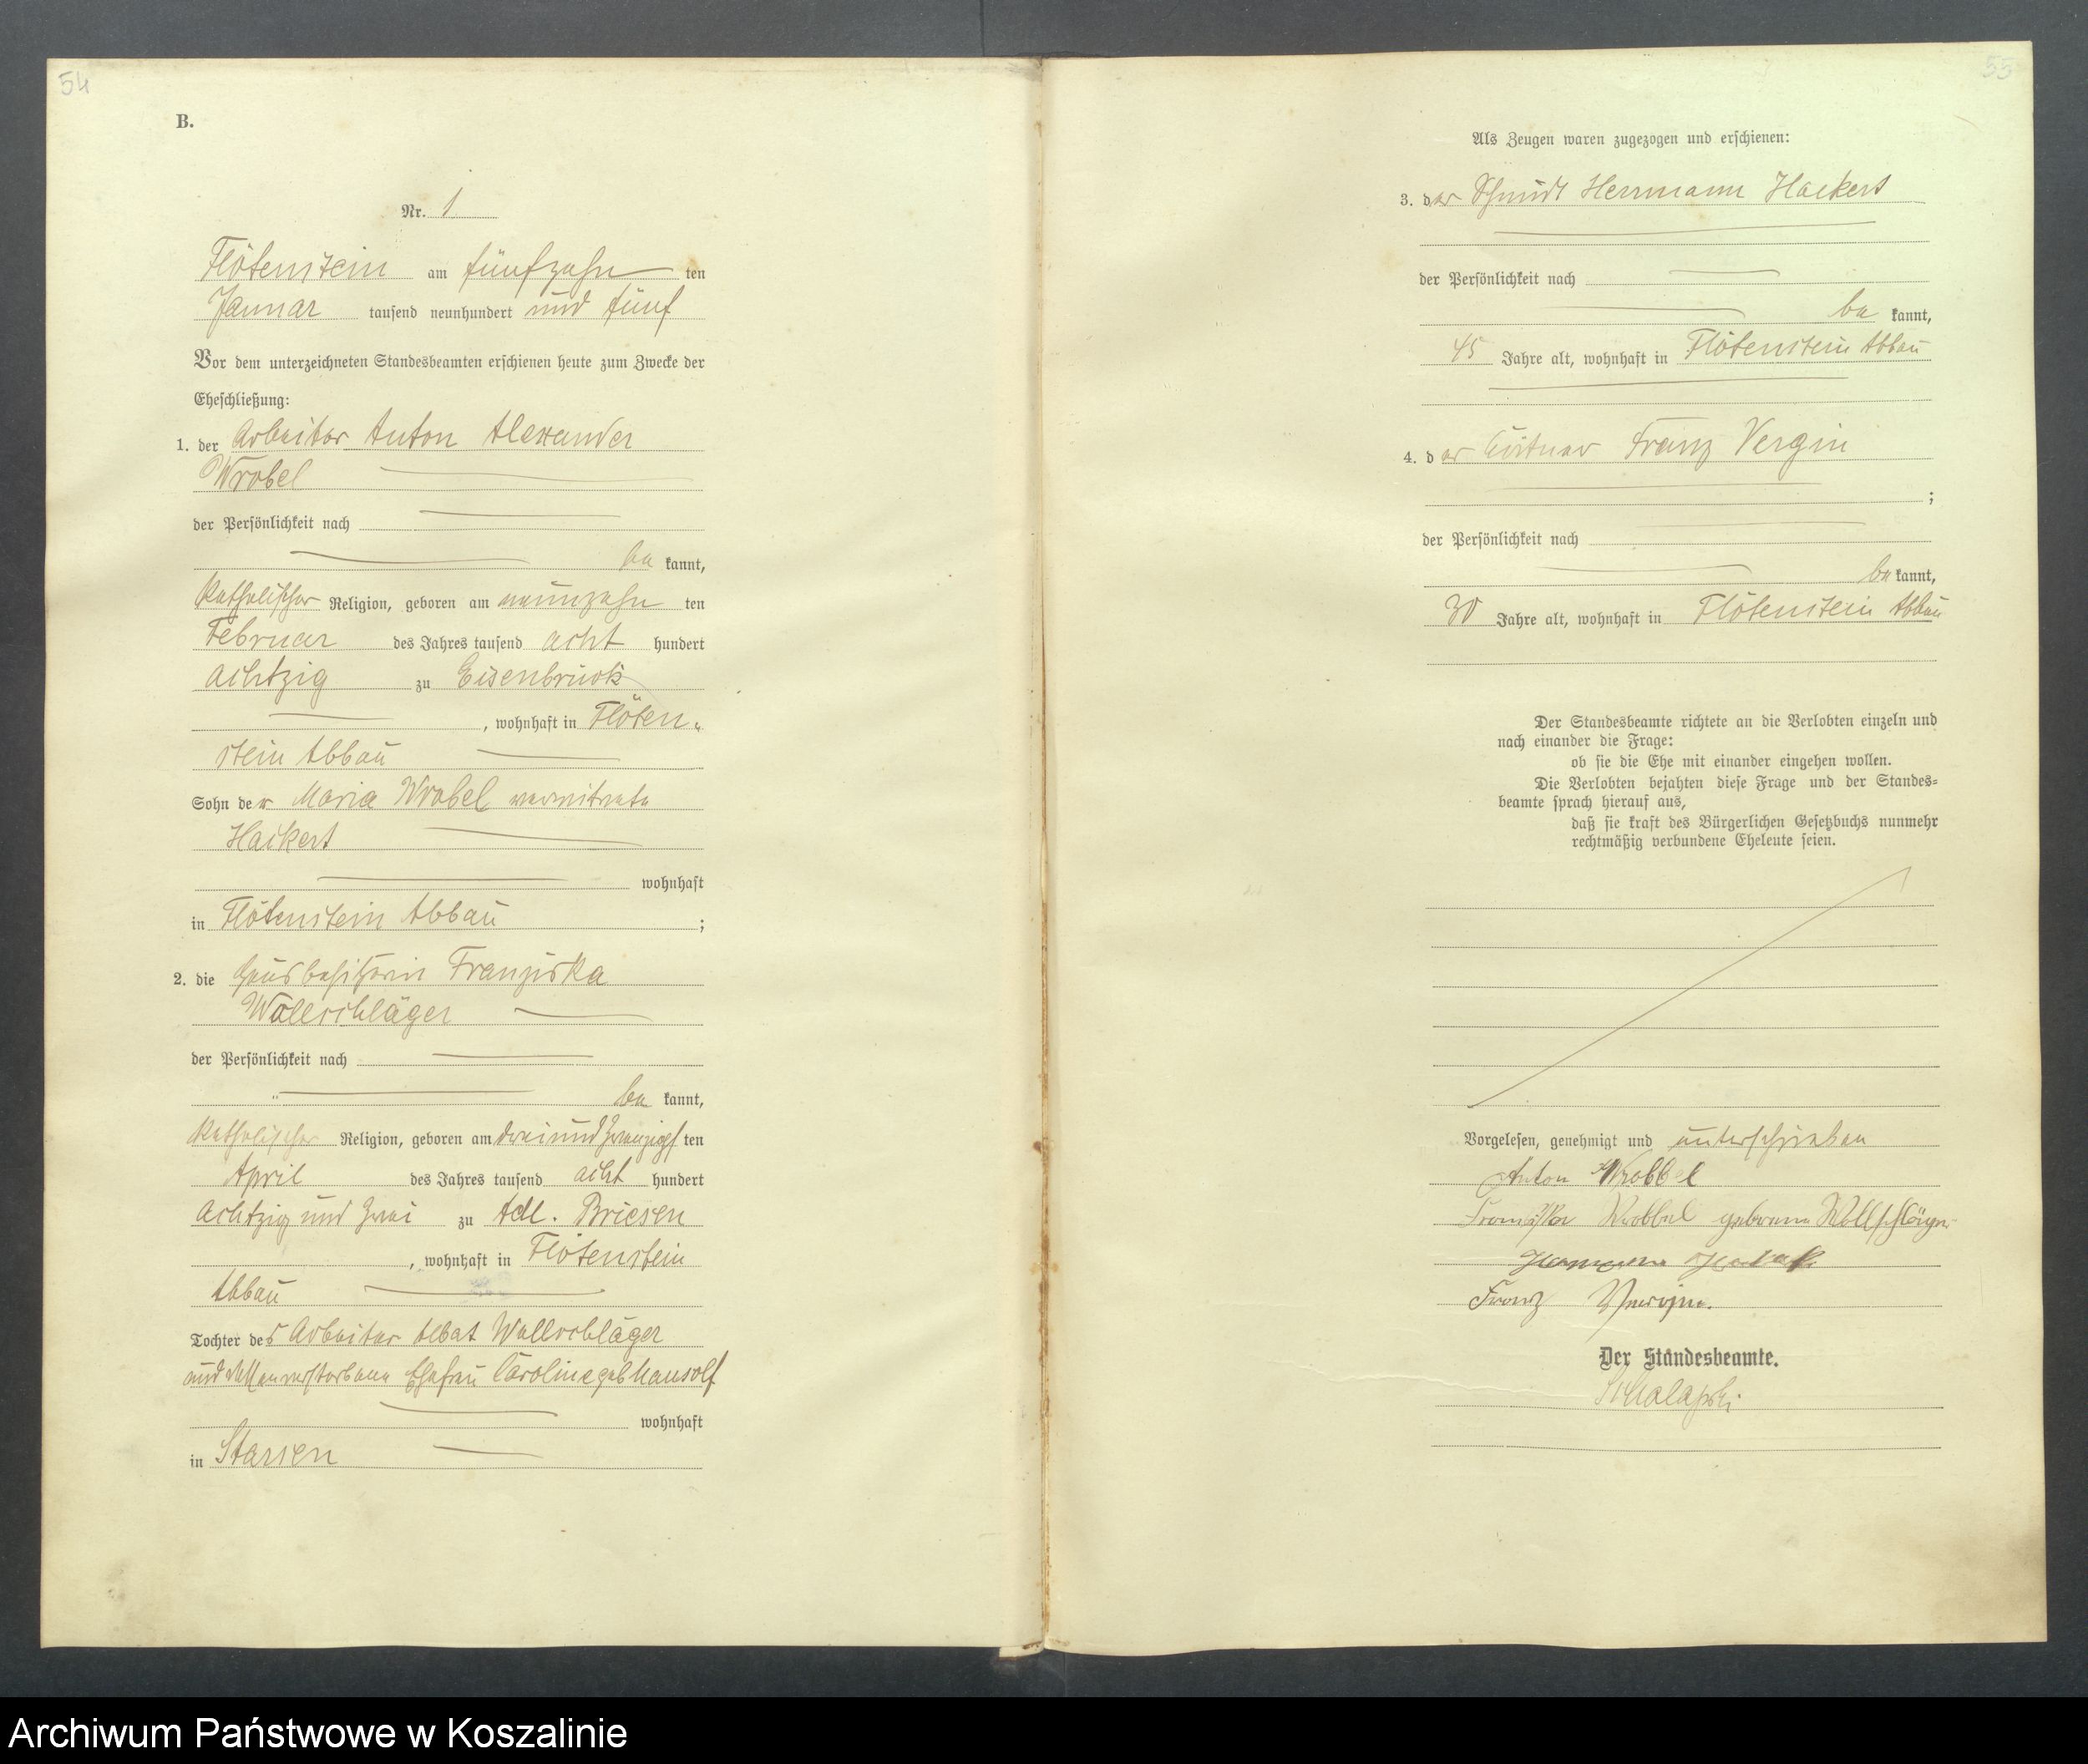 54
B.
Nr. 1
Flötenstein am fünfzehn ten
Januar tausend neunhundert und fünf
Vor dem unterzeichneten Standesbeamten erschienen heute zum Zwecke der
Eheschließung:
1. der Arbeiter Anton Alexander
Wrobel
der Persönlichkeit nach
be kannt,
katholischer Religion, geboren am neunzehn ten
Februar des Jahres tausend acht hundert
achtzig zu Eisenbrück
, wohnhaft in Flöten-
stein Abbau
Sohn der Maria Wrobel
Hackert
wohnhaft
in Flötenstein Abbau ;
2. die Hausbesitzerin Franziska
Wollschläger
der Persönlichkeit nach
be kannt,
katholischer Religion, geboren am dreiundzwanzigs ten
April des Jahres tausend acht hundert
achtzig und zwei zu Adl. Briesen
, wohnhaft in Flötenstein
Abbau
Tochter des Arbeiter Wollschläger
und dessen verstorbene Ehefrau Caroline geb Mausolf
wohnhaft
in Starsen
55
Als Zeugen waren zugezogen und erschienen:
3. der Schmidt Herrmann Hackert
der Persönlichkeit nach
be kannt,
45 Jahre alt, wohnhaft in Flötenstein Abbau
4. der Franz Vergin
;
der Persönlichkeit nach
be kannt,
30 Jahre alt, wohnhaft in Flötenstein Abbau
Der Standesbeamte richtete an die Verlobten einzeln und
nach einander die Frage:
ob sie die Ehe mit einander eingehen wollen.
Die Verlobten bejahten diese Frage und der Standes-
beamte sprach hierauf aus,
daß sie kraft des Bürgerlichen Gesetzbuchs nunmehr
rechtmäßig verbundene Eheleute seien.
Vorgelesen, genehmigt und unterschrieben
Anton Wrobbel
Franziska Wrobbel geborene Wollschläger
Franz
Der Standesbeamte.
Archiwum Państwowe w Koszalinie